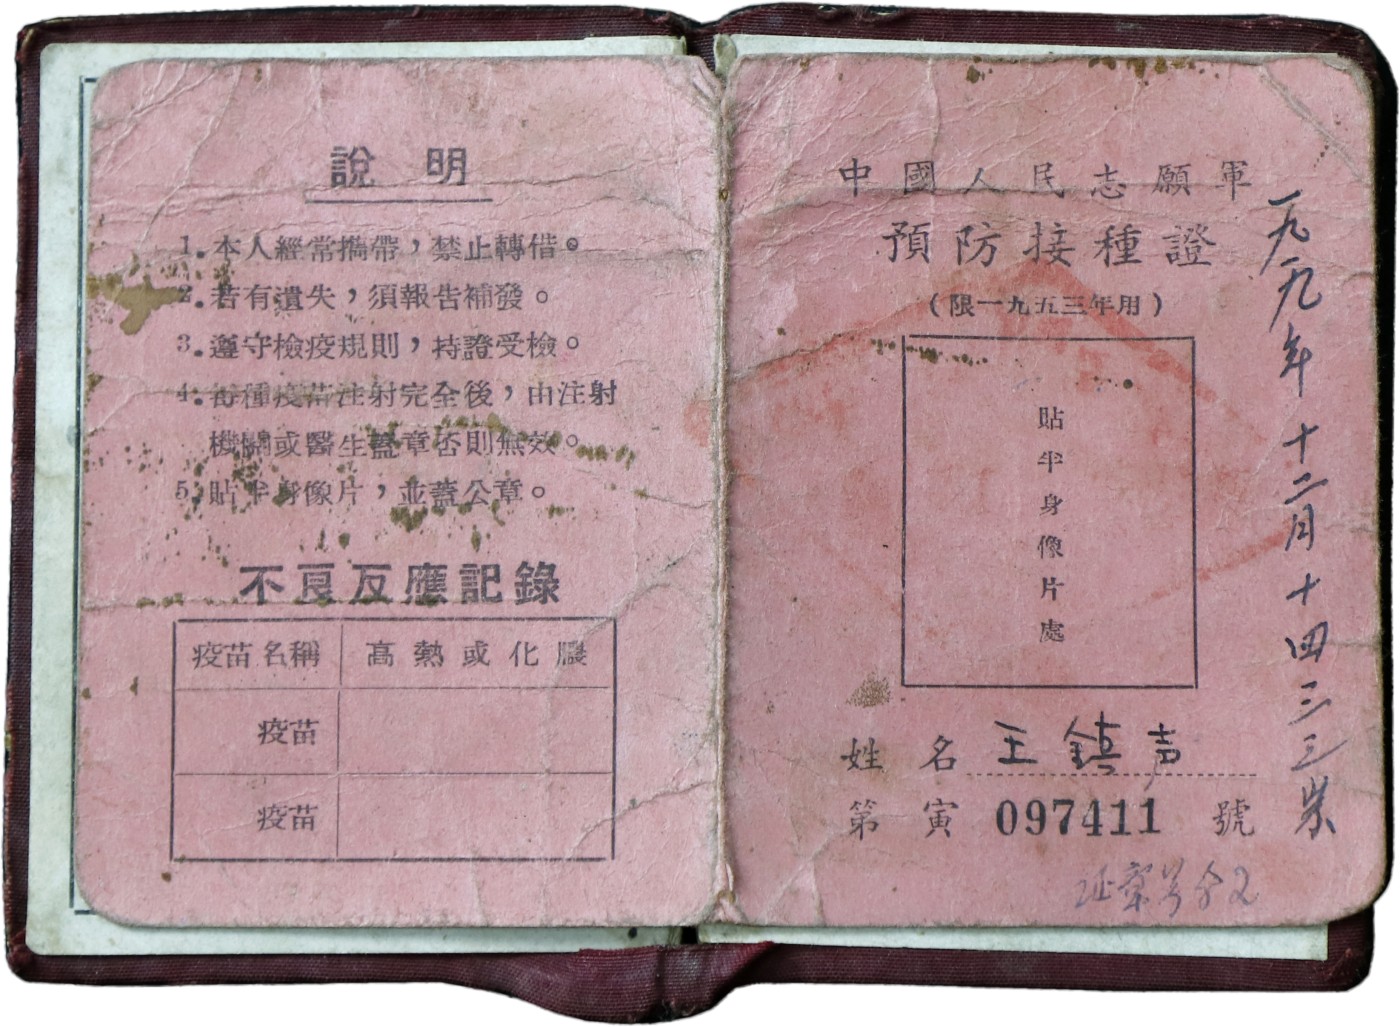 說明
1. 本人經常攜帶，禁止轉借。
2. 若有遺失，須報告補發。
3. 遵守檢疫規則，持證受檢。
4. 每種疫苗注射完全後，由注射
機關或醫生蓋章否則無效。
5. 貼半身像片，並蓋公章。
不良反應記錄
疫苗名稱 高熱或化膿
疫苗
疫苗
中國人民志願軍
預防接種證
（限一九五三年用）
貼半身像片處
姓名 王鎮
第寅 097411 號
一九一九年十二月十四